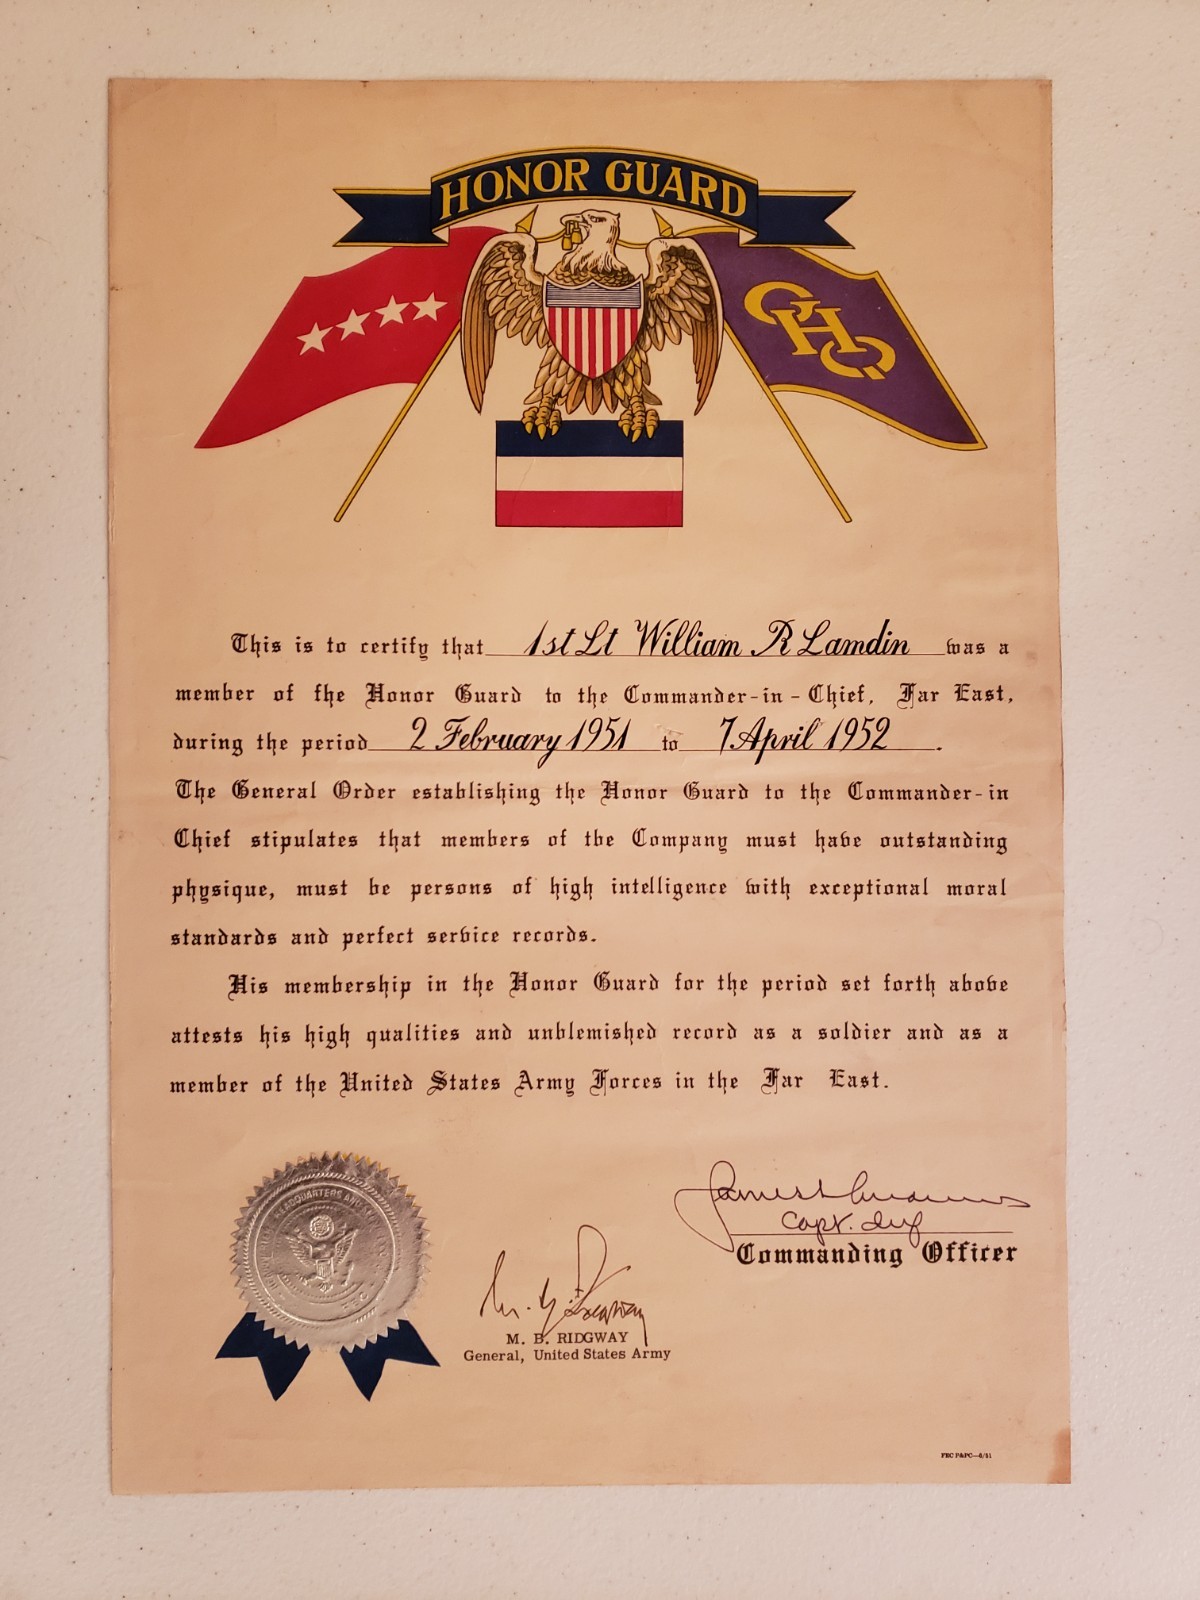 HONOR GUARD
GHQ
This is to certify that 1st Lt William R Lamdin was a
member of the Honor Guard to the Commander-in-Chief, Far East,
during the period 2 February 1951 to 7 April 1952.
The General Order establishing the Honor Guard to the Commander-in
Chief stipulates that members of the Company must have outstanding
physique, must be persons of high intelligence with exceptional moral
standards and perfect service records.
His membership in the Honor Guard for the period set forth above
attests his high qualities and unblemished record as a soldier and as a
member of the United States Army Forces in the Far East.
HEADQUARTERS AND
Capt. Inf
Commanding Officer
M. B. Ridgway
M. B. RIDGWAY
General, United States Army
FEC P&PC—6/51